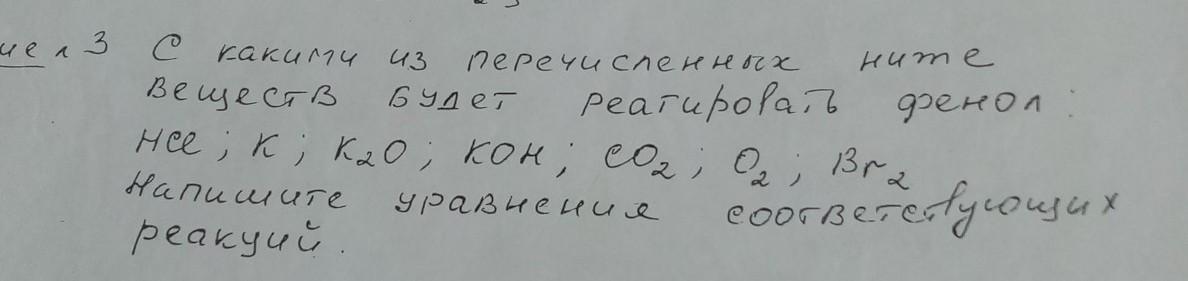 3 С какими из перечисленных ниже
веществ будет реагировать фенол:
HCl; K; K₂O; KOH; CO₂; O₂; Br₂
Напишите уравнения соответствующих
реакций.